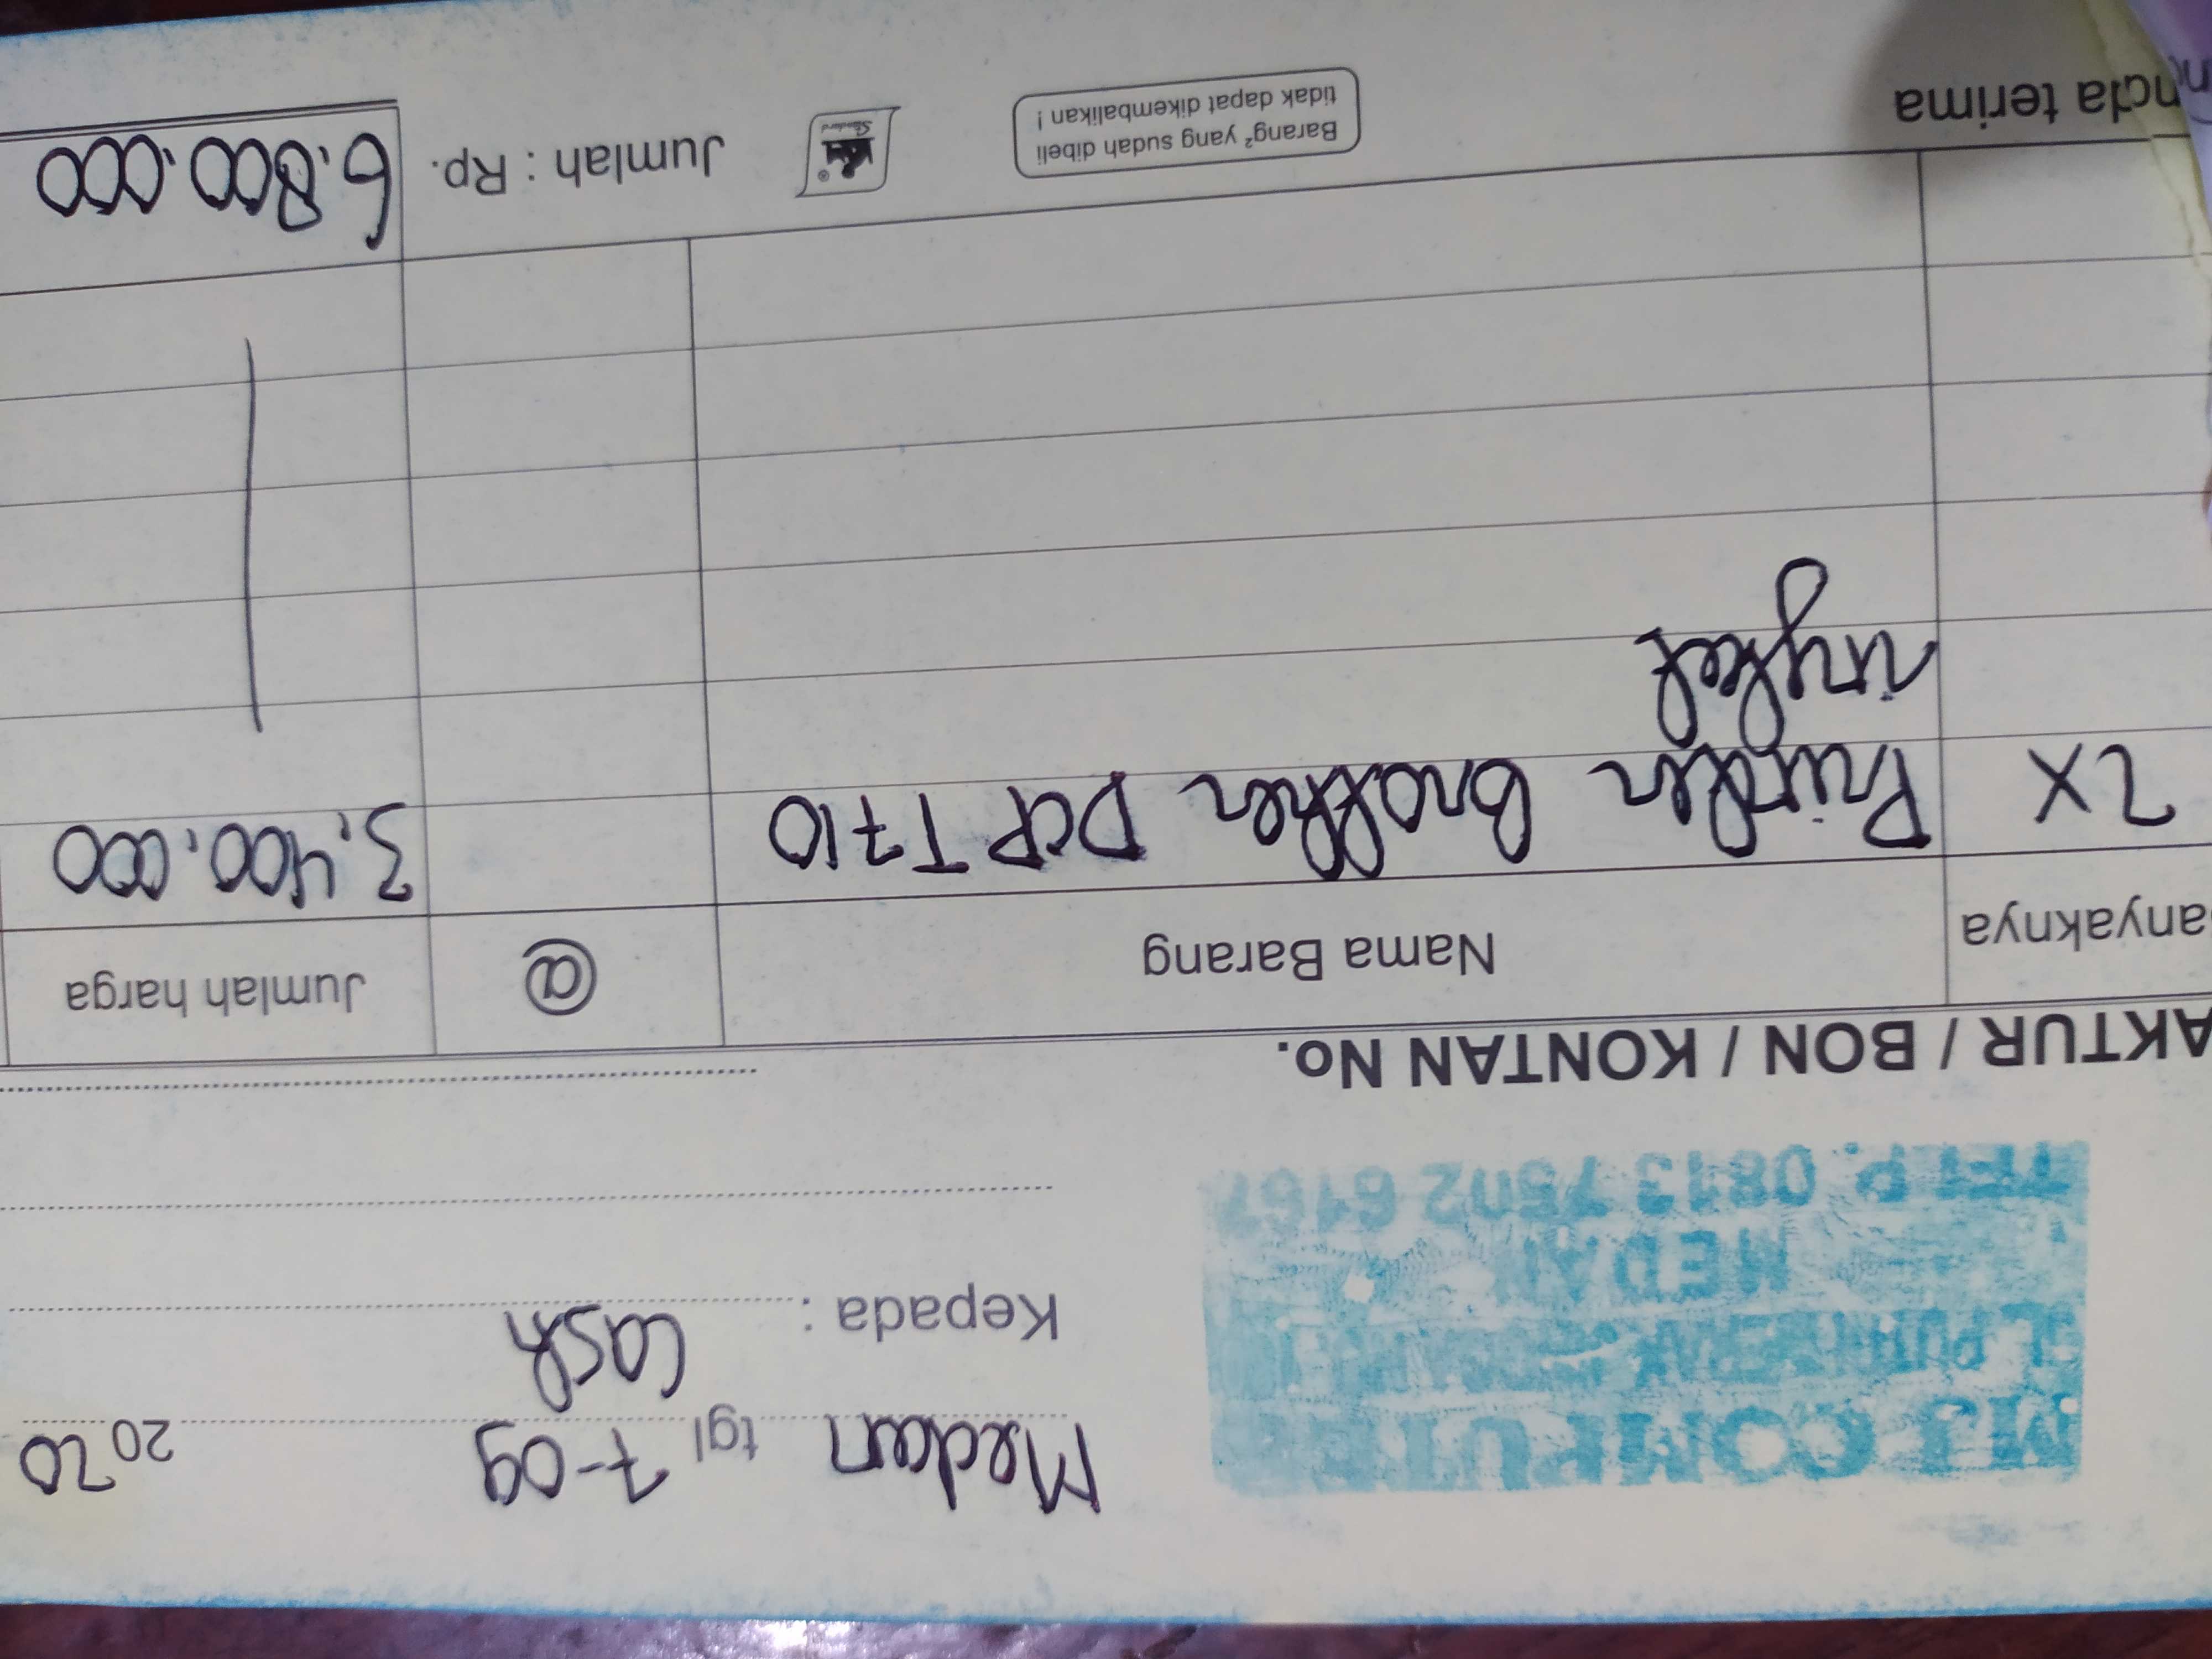 MJ COMPUTER
MEDAN
TELP. 0813 7502 6167
Medan tgl 7-09 2020
Kepada : Cash
AKTUR / BON / KONTAN No.
anyaknya Nama Barang @ Jumlah harga
2X Printer Brother DCP T710 3.400.000
ingkect
nda terima
Barang² yang sudah dibeli
tidak dapat dikembalikan !
Jumlah : Rp. 6.800.000